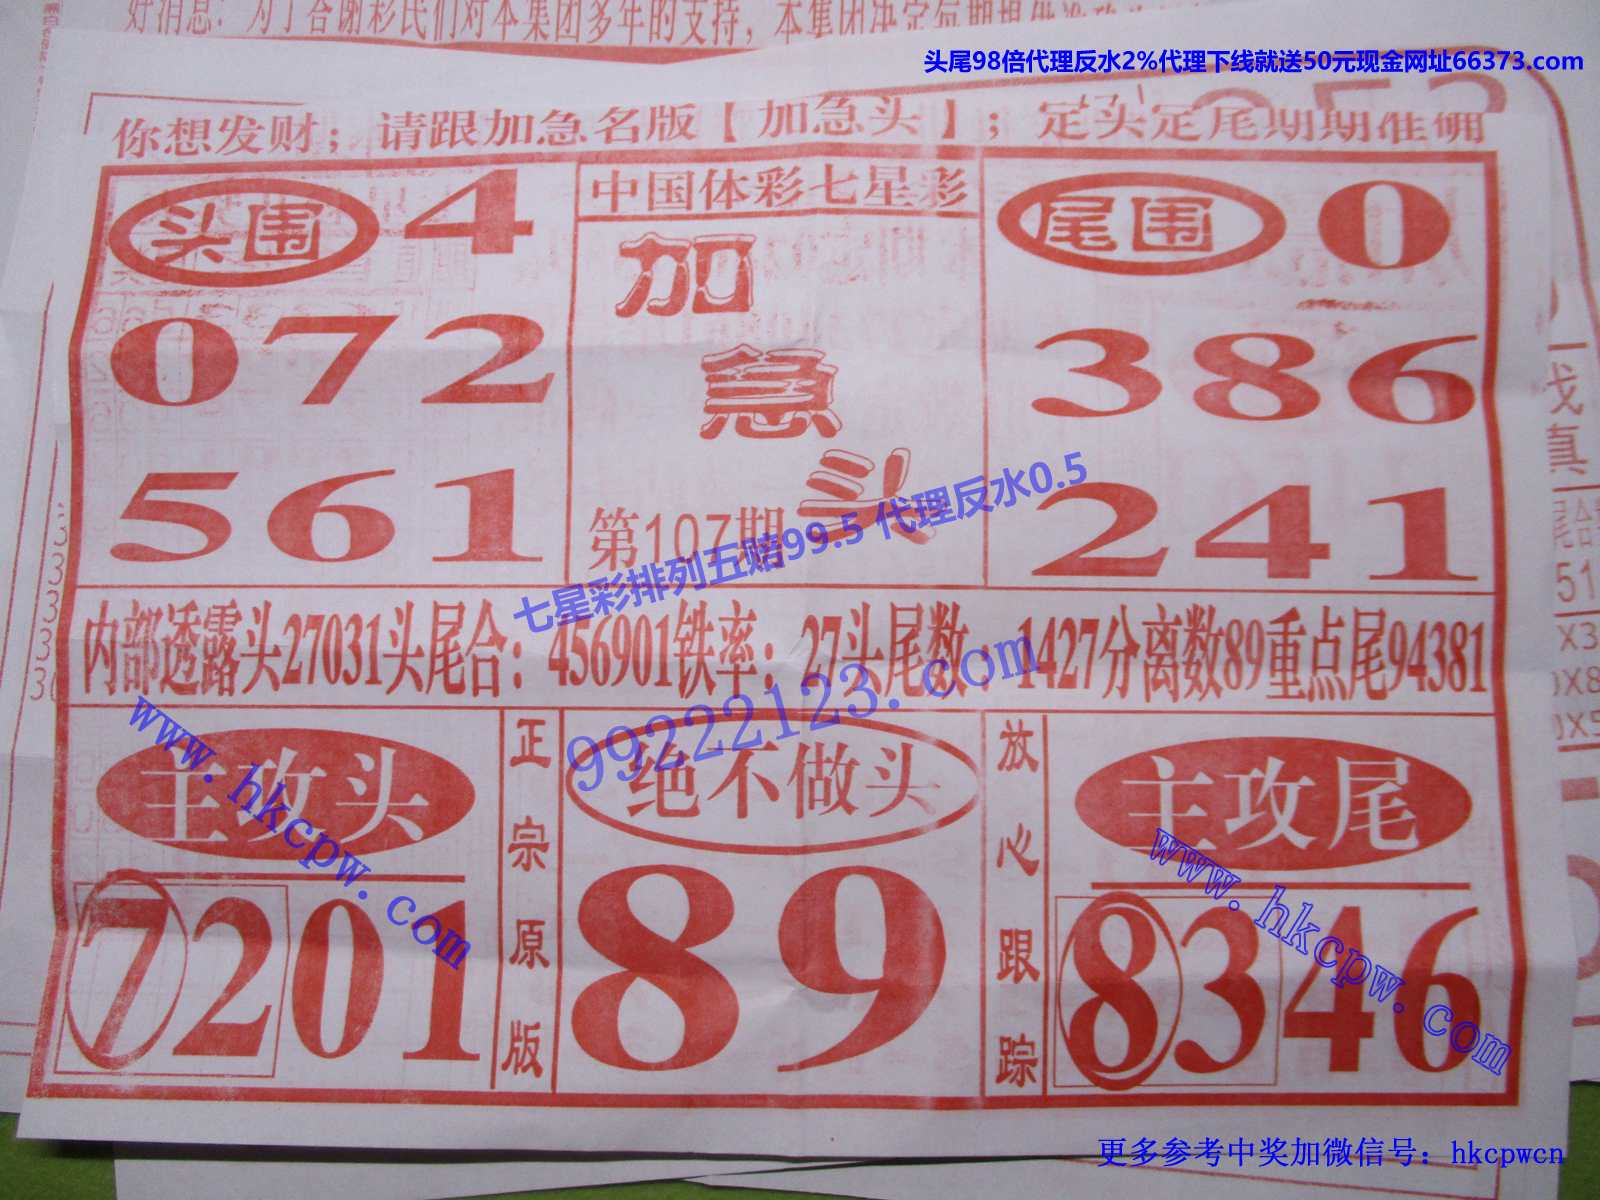 好消息：为了答谢彩民们对本集团多年的支持，本集团决定每期提供
头尾98倍代理反水2%代理下线就送50元现金网址66373.com
你想发财；请跟加急名版【加急头】；定头定尾期期准确
头围 4
072
561
中国体彩七星彩
加
急
头
第107期
尾围 0
386
241
七星彩排列五赔99.5 代理反水0.5
内部透露头27031头尾合：456901铁率；27头尾数：1427分离数89重点尾94381
99222123.com
主攻头
7201
www.hkcpw.com
正宗原版
绝不做头
89
放心跟踪
主攻尾
8346
www.hkcpw.com
真
51
更多参考中奖加微信号：hkcpwcn